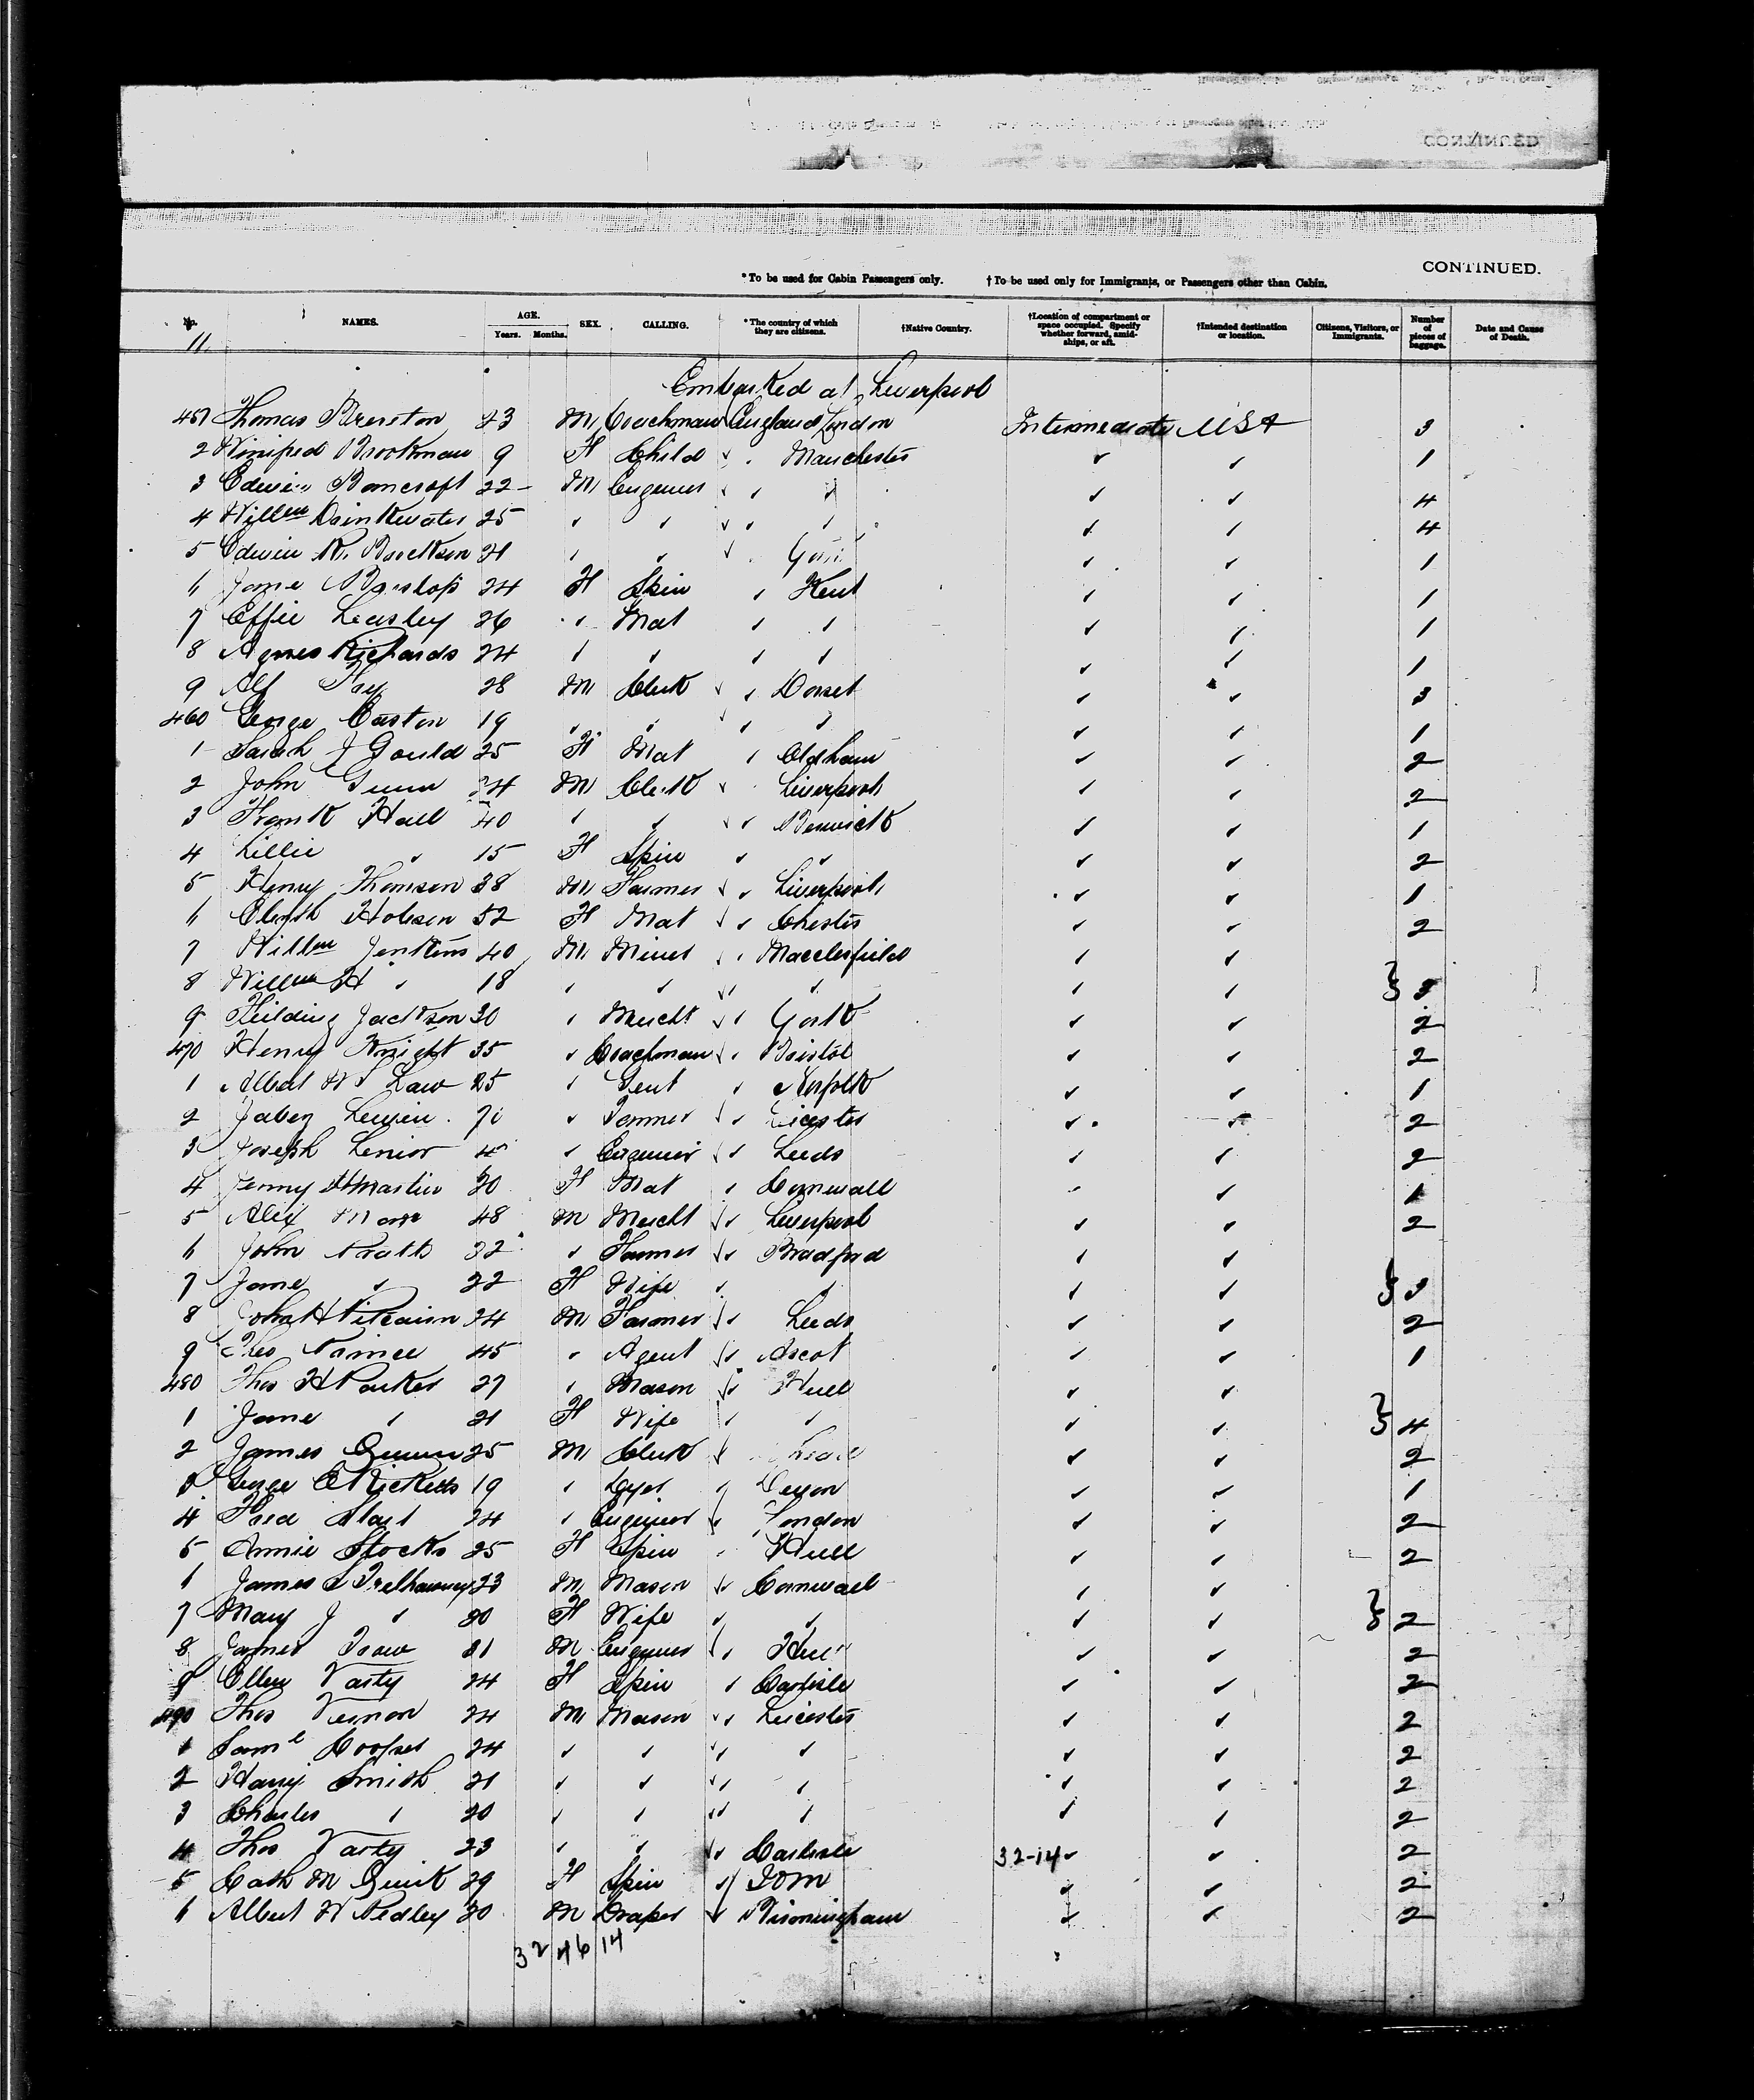 CONTINUED.
*To be used for Cabin Passengers only. †To be used only for Immigrants, or Passengers other than Cabin.
No. NAMES. AGE. Years. Months. SEX. CALLING. *The country of which they are citizens. †Native Country. †Location of compartment or space occupied. Specify whether forward, amidships, or aft. †Intended destination or location. Citizens, Visitors, or Immigrants. Number of pieces of baggage. Date and Cause of Death.
11.
Embarked at Liverpool
451 Thomas 23 M Coachman England London Intermediate USA 3
2 Winifred Brookman 9 F Child ✓ " Manchester ✓ ✓ 1
3 Edwin Bancroft 22 M Engineer ✓ ✓ ✓ ✓ ✓ 4
4 Willm Drinkwater 25 ✓ ✓ ✓ ✓ ✓ ✓ ✓ 4
5 Edwin R. 21 ✓ ✓ ✓ York ✓ ✓ 1
6 Jane 24 F Spin ✓ Kent ✓ ✓ 1
7 Effie Leasley 26 ✓ Mat ✓ ✓ ✓ ✓ 1
8 Agnes Richards 24 ✓ ✓ ✓ ✓ ✓ ✓ 1
9 Alf 28 M Clerk ✓ ✓ Dorset ✓ ✓ 3
460 George Easton 19 ✓ ✓ ✓ ✓ ✓ ✓ ✓ 1
1 Sarah J Gould 25 F Mat ✓ Oldham ✓ ✓ 2
2 John Gunn 24 M Clerk ✓ Liverpool ✓ ✓ 2
3 Frank Hall 40 ✓ ✓ ✓ ✓ Berwick ✓ ✓ 1
4 Lillie ✓ 15 F Spin ✓ ✓ ✓ ✓ 2
5 Henry Thomson 38 M Farmer ✓ ✓ Liverpool ✓ ✓ 1
6 Elizth Hobson 52 F Mat ✓ ✓ Chester ✓ ✓ 2
7 Willm Jenkins 40 M Miner ✓ ✓ Macclesfield ✓ ✓
8 Willm H ✓ 18 ✓ ✓ ✓ ✓ ✓ ✓ ✓ } 3
9 Fielding Jackson 30 ✓ Mercht ✓ ✓ York ✓ ✓ 2
470 Henry Knight 35 ✓ Coachman ✓ ✓ Bristol ✓ ✓ 2
1 Albert W Law 25 ✓ Gent ✓ Norfolk ✓ ✓ 1
2 Jabez Lewin ✓ ✓ ✓ Leicester ✓ ✓ 2
3 Joseph Lenior ✓ Engineer ✓ ✓ Leeds ✓ ✓ 2
4 Jenny Martin 20 F Mat ✓ Cornwall ✓ ✓ 1
5 Alex 48 M Mercht ✓ ✓ Liverpool ✓ ✓ 2
6 John 32 ✓ Farmer ✓ ✓ Bradford ✓ ✓
7 Jane ✓ 22 F Wife ✓ ✓ ✓ ✓ } 3
8 John H Pitcairn 24 M Farmer ✓ ✓ Leeds ✓ ✓ 2
9 Thos 45 ✓ Agent ✓ ✓ Ascot ✓ ✓ 1
480 Thos H Parker 27 ✓ Mason ✓ ✓ Hull ✓ ✓
1 Jane ✓ 21 F Wife ✓ ✓ ✓ ✓ } 4
2 James 25 M Clerk ✓ ✓ ✓ 2
3 George E Ricketts 19 ✓ Dyer ✓ Devon ✓ ✓ 1
4 Fred 24 ✓ Engineer ✓ ✓ London ✓ ✓ 2
5 Annie Stocks 25 F Spin ✓ Hull ✓ ✓ 2
6 James S Trelhawney 23 M Mason ✓ ✓ Cornwall ✓ ✓
7 Mary J ✓ 20 F Wife ✓ ✓ ✓ ✓ } 2
8 James M Engineer ✓ ✓ Hull ✓ ✓ 2
9 Ellen Varty 24 F Spin ✓ Carlisle ✓ ✓ 2
490 Thos Vernon 24 M Mason ✓ ✓ Leicester ✓ ✓ 2
1 Saml Cooper 24 ✓ ✓ ✓ ✓ ✓ ✓ ✓ 2
2 Harry Smith 21 ✓ ✓ ✓ ✓ ✓ ✓ ✓ 2
3 Charles ✓ 20 ✓ ✓ ✓ ✓ ✓ ✓ ✓ 2
4 Thos Varty 23 ✓ ✓ ✓ ✓ Carlisle 32-14 ✓ ✓ 2
5 Cath M Quirk 29 F Spin ✓ IOM ✓ ✓ 2
6 Albert W Pedley 20 M Draper ✓ ✓ Birmingham ✓ ✓ 2
32 46 14